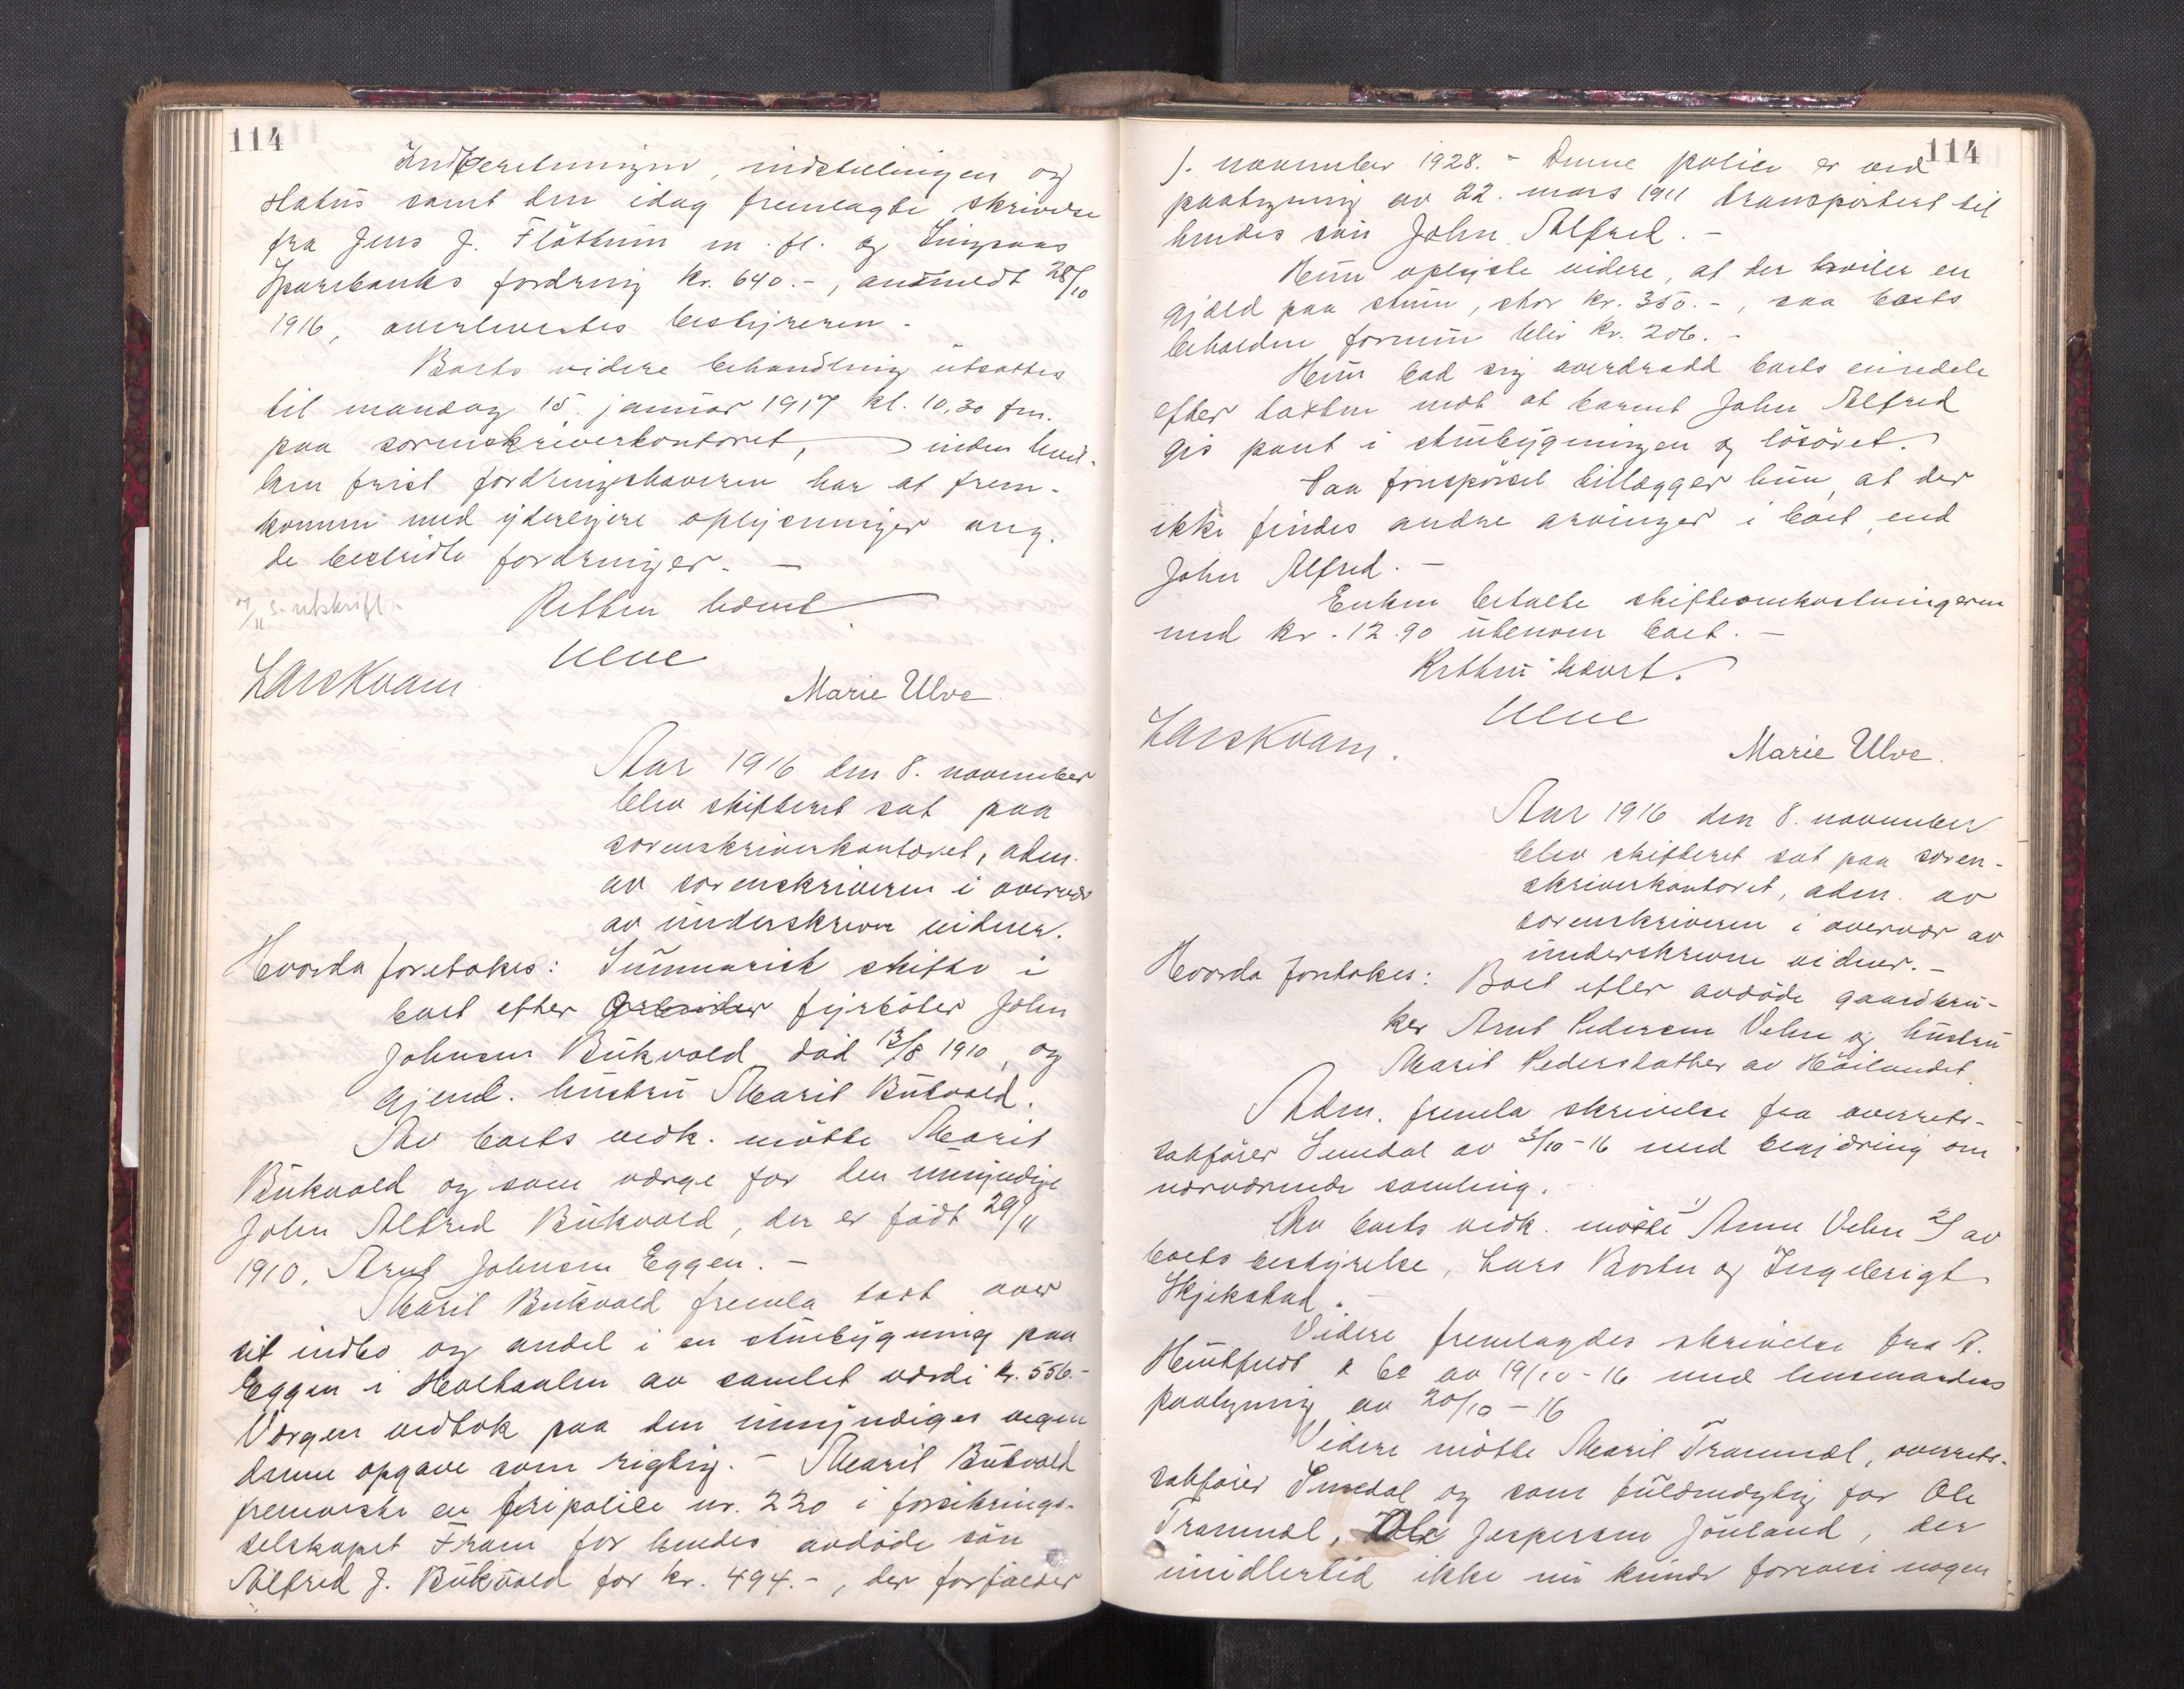 114
Indberetningen, indstillingen og
status samt den idag fremlagte skrivelse
fra Jens J. Flöttum m. fl. og Singsaas
Sparebanks fordring kr. 640.-, anmeldt 28/10
1916, overlevertes bestyreren.
Boets videre behandling utsattes
til mandag 15. januar 1917 kl. 10,30 fm.
paa sorenskriverkontoret, inden hvil-
ken frist fordringshaveren har at frem-
komme med yderligere oplysninger ang.
de bestridte fordringer. -
7/11 s. utskrift.
Retten hævet.
Ulve
Lars Kvam.
Marie Ulve.
Aar 1916 den 8. november
blev skifteret sat paa
sorenskriverkontoret, adm.
av sorenskriveren i overvær
av underskrevne vidner.
Hvorda foretokes: Summarisk skifte i
boet efter fyrböter John
Johnsen Bukvold, död 13/8 1910, og
gjenl. hustru Marit Bukvold.
Av boets vedk. mötte Marit
Bukvold og som værge for den umyndige
John Alfred Bukvold, der er födt 29/11
1910, Arnt Johnsen Eggen. -
Marit Bukvold fremla takst over
sit indbo og andel i en stuebygning paa
Eggen i Holtaalen av samlet værdi kr. 556.-
Værgen vedtok paa den umyndiges vegne
denne opgave som rigtig. - Marit Bukvold
fremviste en fripolice nr. 220 i forsikrings-
selskapet Fram for hendes avdöde sön
Alfred J. Bukvold for kr. 494.-, der forfalder
114
1. november 1928. - Denne police er ved
paategning av 22. mars 1911 transportert til
hendes sön John Alfred. -
Hun oplyste videre, at der hviler en
gjæld paa stuen, stor kr. 350.-, saa boets
beholdne formue blir kr. 206. -
Hun bad sig overdradd boets eiendele
efter taksten mot at barnet John Alfred
gis pant i stuebygningen og lösöret.
Paa forespörsel tillægger hun, at der
ikke findes andre arvinger i boet, end
John Alfred. -
Enken betalte skifteomkostningerne
med kr. 12.90 utenom boet. -
Retten hævet.
Ulve
Lars Kvam.
Marie Ulve.
Aar 1916 den 8. november
blev skifteret sat paa soren-
skriverkontoret, adm. av
sorenskriveren i overvær av
underskrevne vidner. -
Hvorda foretokes: Boet efter avdöde gaardbru-
ker Arnt Pedersen Velen og hustru
Marit Pedersdatter av Höilandet.
Adm. fremla skrivelse fra overrets-
sakförer Smedal av 3/10-16 med begjæring om
nærværende samling. -
Av boets vedk. mötte 1) Anne Velen 2) av
boets bestyrelse, Lars Borten og Ingebrigt
Skjikstad. -
Videre fremlagdes skrivelse fra A.
Huitfeldt & Co av 19/10-16 med lensmandens
paategning av 20/10-16
Videre mötte Marit Tramdal, overrets-
sakförer Smedal og som fuldmægtig for Ole
Tramdal, Ole Jespersen Jönland, der
imidlertid ikke nu kunde forevise nogen